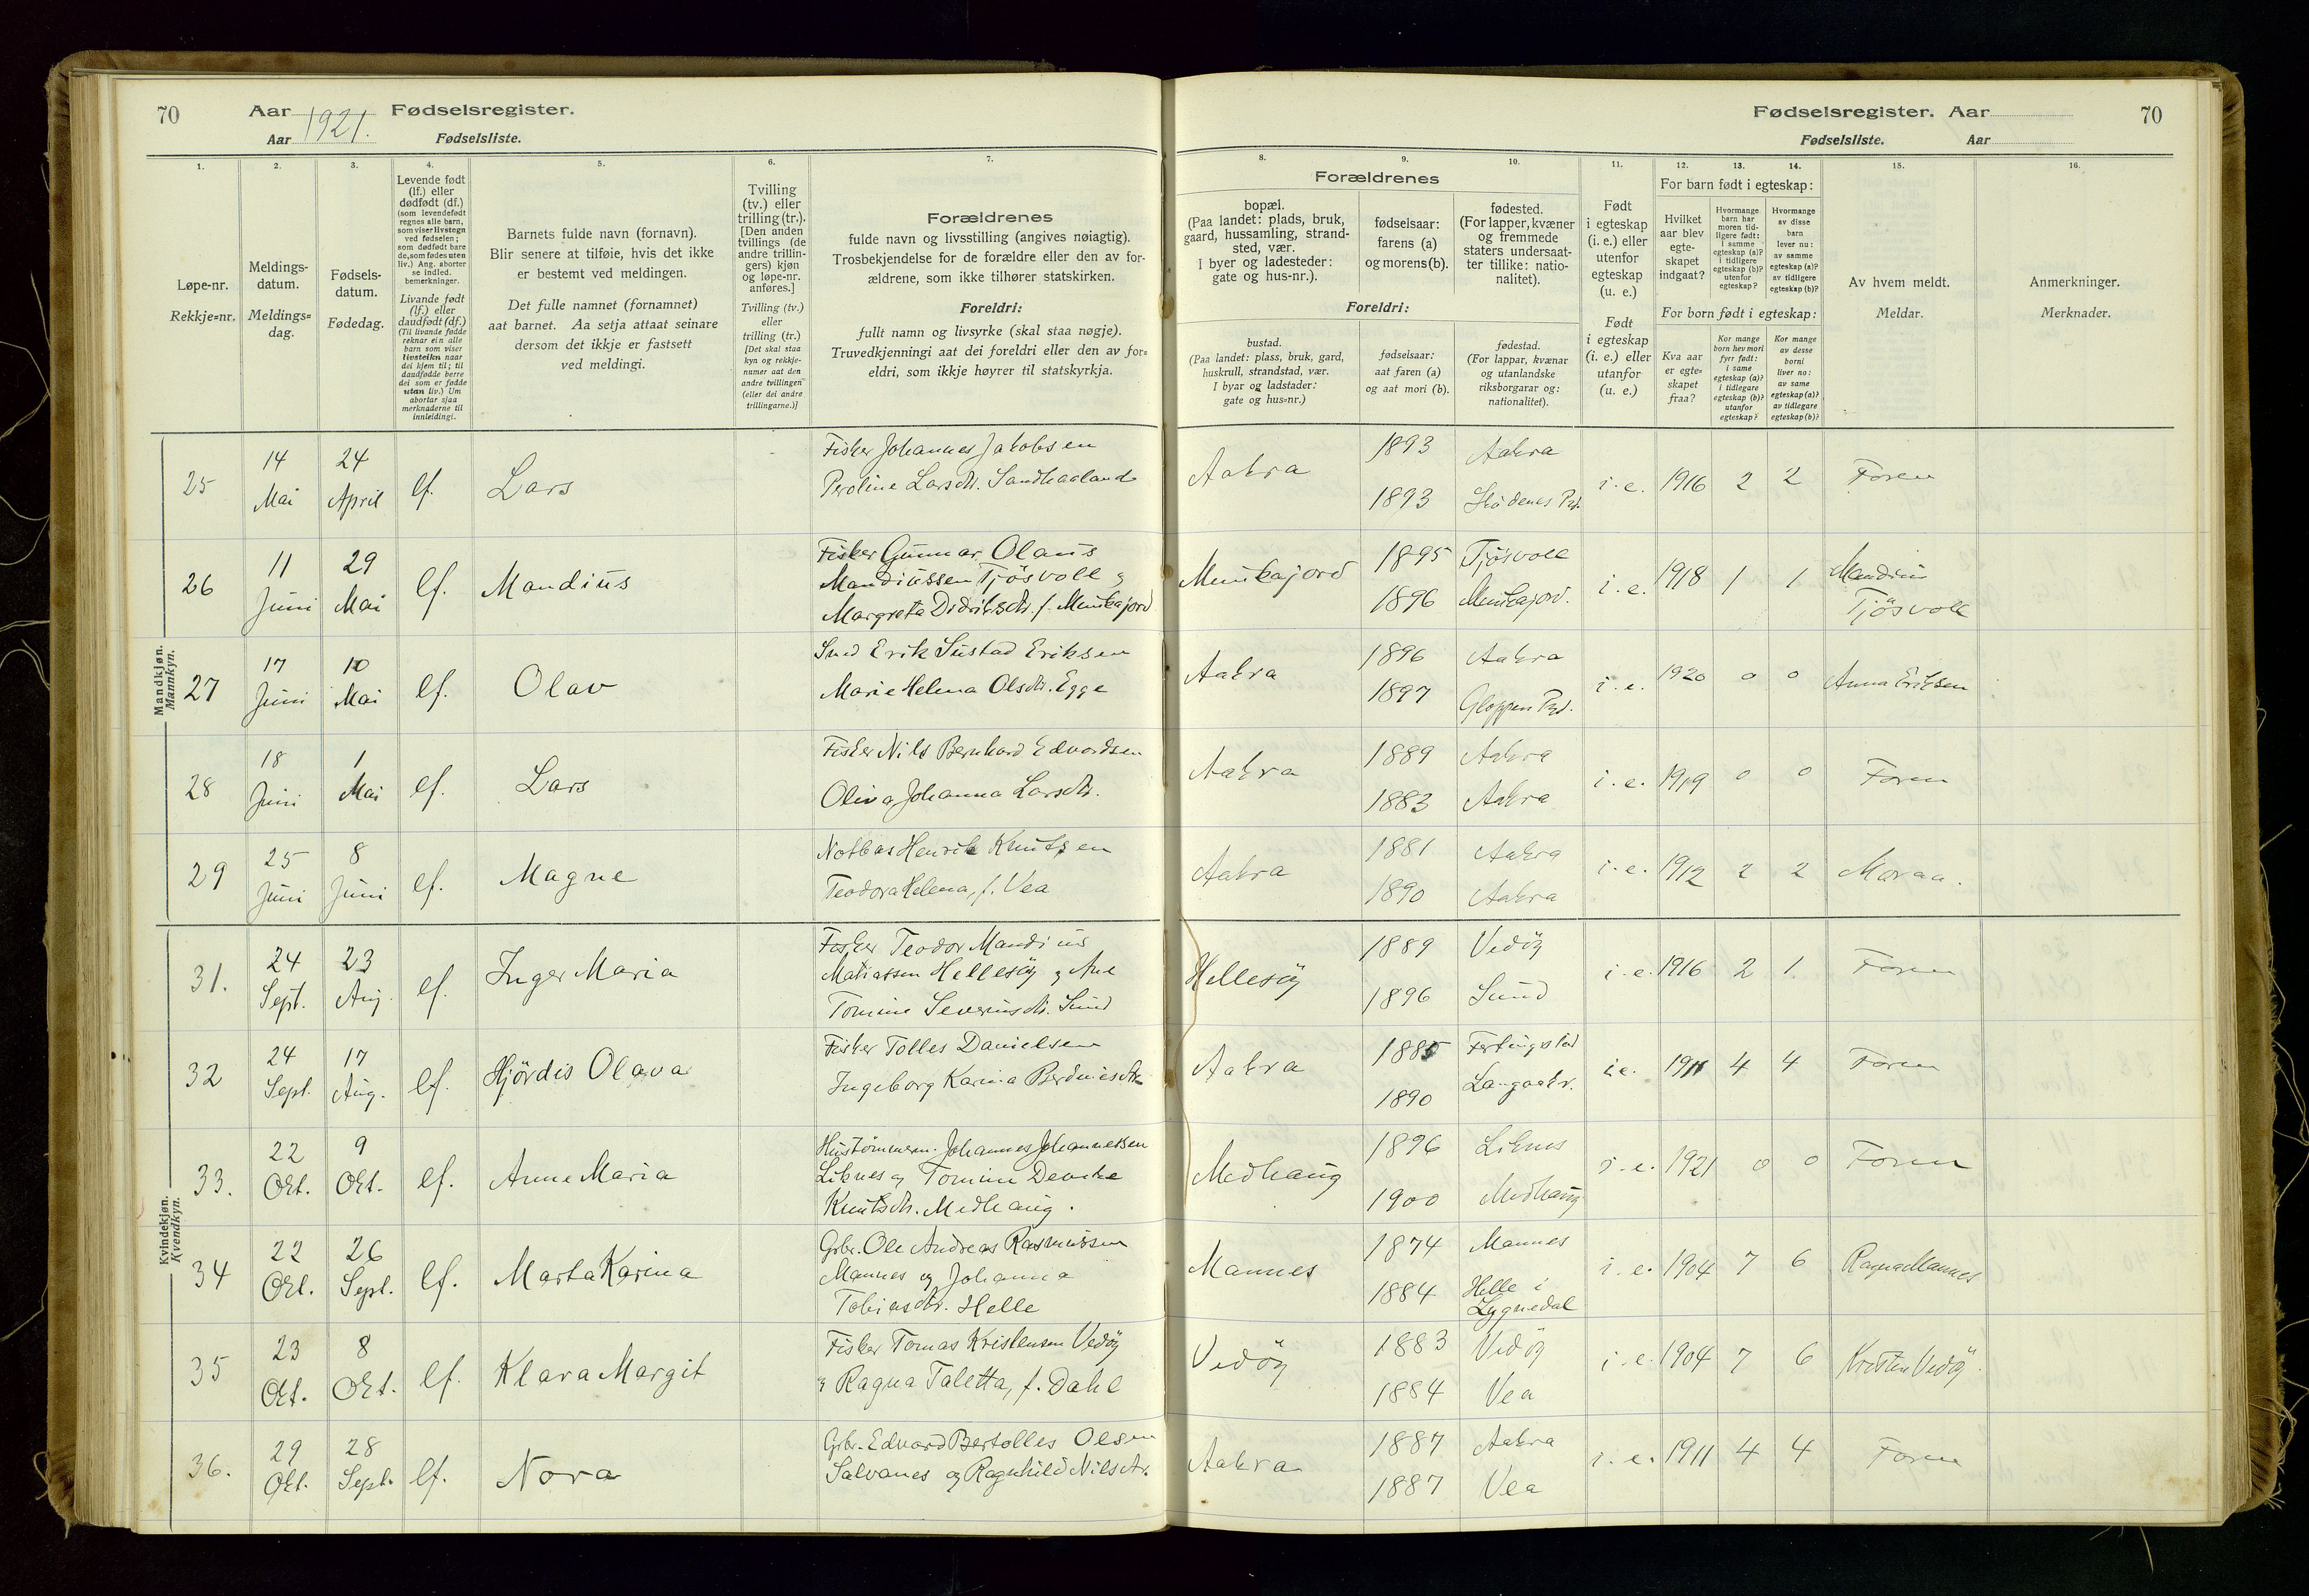 70 Aar 1921. Fødselsregister.
Aar Fødselsliste.
Fødselsregister. Aar 70
Fødselsliste. Aar
1. 2. 3. 4. 5. 6. 7. 8. 9. 10. 11. 12. 13. 14. 15. 16.
Løpe-nr.
Rekkje=nr.
Meldings-
datum.
Meldings=
dag.
Fødsels-
datum.
Fødedag.
Levende født
(lf.) eller
dødfødt (df.)
(som levendefødt
regnes alle barn,
som viser livstegn
ved fødselen;
som dødfødt bare
de, som fødes uten
liv.) Ang. aborter
se indled.
bemerkninger.
Livande født
(lf.) eller
daudfødt (df.)
(Til livande fødde
reknar ein alle
barn som viser
livsteikn naar
dei kjem til; til
daudfødde berre
dei som er fødde
utan liv.) Um
abortar sjaa
merknaderne til
innleidingi.
Barnets fulde navn (fornavn).
Blir senere at tilføie, hvis det ikke
er bestemt ved meldingen.
Det fulle namnet (fornamnet)
aat barnet. Aa setja attaat seinare
dersom det ikkje er fastsett
ved meldingi.
Tvilling
(tv.) eller
trilling (tr.).
[Den anden
tvillings (de
andre trillin-
gers) kjøn
og løpe-nr.
anføres.]
Tvilling (tv.)
eller
trilling (tr.)
[Det skal staa
kyn og rekkje-
numer aat den
andre tvillingen
(eller dei andre
trillingarne.)]
Forældrenes
fulde navn og livsstilling (angives nøiagtig).
Trosbekjendelse for de forældre eller den av for-
ældrene, som ikke tilhører statskirken.
Foreldri:
fullt namn og livsyrke (skal staa nøgje).
Truvedkjenningi aat dei foreldri eller den av for=
eldri, som ikkje høyrer til statskyrkja.
Forældrenes
bopæl.
(Paa landet: plads, bruk,
gaard, hussamling, strand-
sted, vær.
I byer og ladesteder:
gate og hus-nr.).
fødselsaar:
farens (a)
og morens (b).
fødested.
(For lapper, kvæner
og fremmede
staters undersaat-
ter tillike: natio-
nalitet).
Foreldri:
bustad.
(Paa landet: plass, bruk, gard,
huskrull, strandstad, vær.
I byar og ladstader:
gate og hus=nr.)
fødselsaar:
aat faren (a)
og aat mori (b).
fødestad.
(For lappar, kvænar
og utanlandske
riksborgarar og:
nationalitet).
Født
i egteskap
(i. e.) eller
utenfor
egteskap
(u. e.)
Født
i egteskap
(i. e.) eller
utanfor
egteskap
(u. e.)
For barn født i egteskap:
Hvilket
aar blev
egte-
skapet
indgaat?
Hvormange
barn har
moren tid-
ligere født:
i samme
egteskap (a)?
i tidligere
egteskap (b)?
utenfor
egteskap?
Hvormange
av disse
barn
lever nu:
av samme
egteskap (a)?
av tidligere
egteskap (b)?
For born født i egteskap:
Kva aar
er egte=
skapet
fraa?
Kor mange
born hev mori
fyrr født:
i same
egteskap (a)?
i tidlegare
egteskap (b)?
utanfor
egteskap?
Kor mange
av desse
borni
liver no:
av same
egteskap (a)?
av tidlegare
egteskap (b)?
Av hvem meldt.
Meldar.
Anmerkninger.
Merknader.
Mandkjøn.
Mannkyn.
25 14 Mai 24 April lf. Lars
Fisker Johannes Jakobsen
Peroline Larsdtr. Sandhaaland
Aakra 1893 Aakra i. e. 1916 2 2 Faren
1893 Skudenes Pd.
26 11 Juni 29 Mai lf. Mandius
Fisker Gunnar Olaus
Mandiussen Tjösvoll &
Margreta Didriksdtr. f. Munkajord
Munkajord 1895 Tjösvoll i. e. 1918 1 1 Mandius
1896 Munkajord. Tjösvoll
27 17 Juni 10 Mai lf. Olav
Smed Erik Sustad Eriksen
Marie Helena Olsdtr. Egge
Aakra 1896 Aakra i. e. 1920 0 0 Anna Eriksen
1897 Gloppen Pgd.
28 18 Juni 1 Mai lf. Lars
Fisker Nils Bernhard Edvardsen
Oliva Johanna Larsdtr.
Aakra 1889 Aakra i. e. 1919 0 0 Faren
1883 Aakra
29 25 Juni 8 Juni lf. Magne
Notbas Henrik Knutsen
Teodora Helena, f. Vea
Aakra 1881 Aakra i. e. 1912 2 2 Moraa.
1890 Aakra
Kvindekjøn.
Kvendkyn.
31. 24 Sept. 23 Aug. lf. Inger Maria
Fisker Teodor Mandius
Matiassen Hellesöy & Ane
Tomine Severinsdtr. Sund
Hellesöy 1889 Vedöy i. e. 1916 2 1. Faren
1896 Sund
32 24 Sept. 17 Aug. lf. Hjördis Olava
Fisker Tolles Danielsen
Ingeborg Karina Berdinesdtr.
Aakra 1885 Ferkingstad i.e. 1911 4 4 Faren
1890 Langaakr.
33. 22 Okt. 9 Okt. lf. Anne Maria
Hustömmerm. Johannes Johannessen
Liknes & Tomine
Knutsdtr. Medhaug.
Medhaug 1896 Liknes i. e. 1921 0 0 Faren
1900 Medhaug
34 22 Okt. 26 Sept. lf. Marta Karina
Gbr. Ole Andreas Rasmussen
Mannes og Johanna
Tobiasdtr. Helle
Mannes 1874 Mannes i. e. 1904 7 6 Ragna Mannes
1884 Helle i
Lygnedal
35 23 Okt. 8 Okt. lf. Klara Margit
Fisker Tomas Kristensen Vedöy
& Ragna Taletta, f. Dahl
Vedöy 1883 Vedöy i. e. 1904 7 6 Kristen Vedöy.
1884 Vea
36. 29 Okt. 28 Sept. lf. Nora
Gbr. Edvard Bertolles Olsen
Salvanes og Ragnhild Nilsdtr.
Aakra 1887 Aakra i. e. 1911 4 4 Faren
1887 Vea